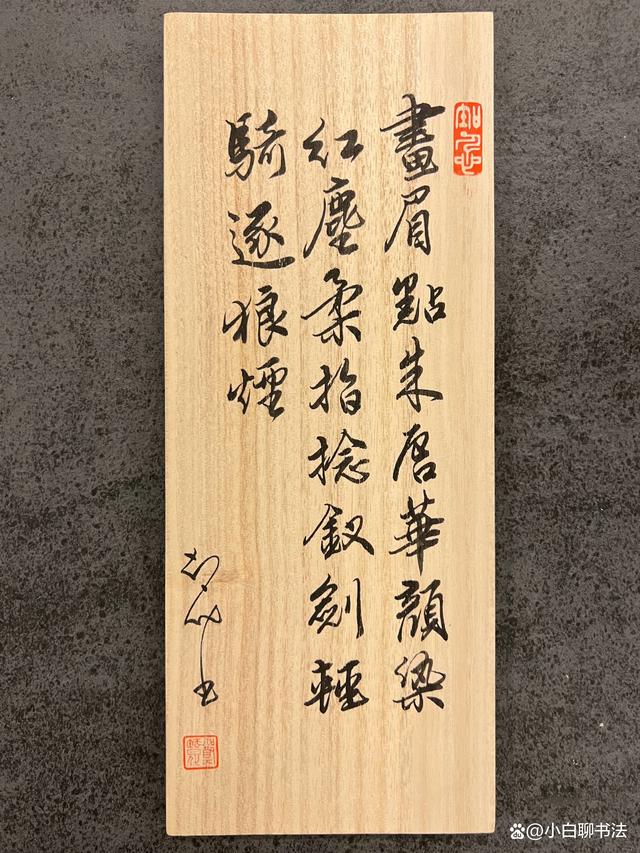 畫眉點朱唇華顏染
紅塵柔指捻釵劍輕
騎逐狼煙
@小白聊书法